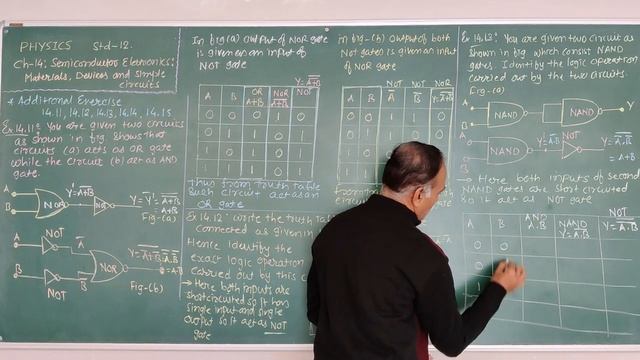 PHYSICS Std-12.
Ch-14: Semiconductor Electronics:
Materials, Devices and Simple
circuits
* Additional Exercise
14.11, 14.12, 14.13, 14.14, 14.15
Ex.14.11: You are given two circuits
as shown in fig shows that
circuits (a) acts as OR gate
while the circuit (b) act as AND
gate.
A
B
NOR
Y'=A̅+̅B̅
NOT
Fig-(a)
A
NOT
A̅
B
NOT
B̅
NOR
Fig-(b)
In fig(a) output of NOR gate
is given an input of
NOT gate
A B OR A+B NOR NOT
0 0 0 1 0
0 1 1 0 1
1 0 1 0 1
1 1 1 0 1
Thus from truth table
such circuit act as an
OR gate
Ex 14.12: Write the truth
connected as given in
Hence identify the
exact logic operation
carried out by this
→ Here both inputs are
short circuited so it has
single input and single
output so it act as NOT
gate
in fig-(b) output of both
Not gates is given an input
of NOR gate
NOT NOT NOR
A B A̅ B̅
0 0 1 1 0
Ex 14.13: You are given two circuit as
shown in fig. which consist NAND
gates. Identify the logic operation
carried out by the two circuits.
Fig-(a)
A
B
NAND NAND Y
A
B
NAND NOT
= A·B
→ Here both inputs of second
NAND gates are short circuited
so it act as NOT
A B AND A.B NAND Y=A̅.̅B̅ NOT
0 0
0
1